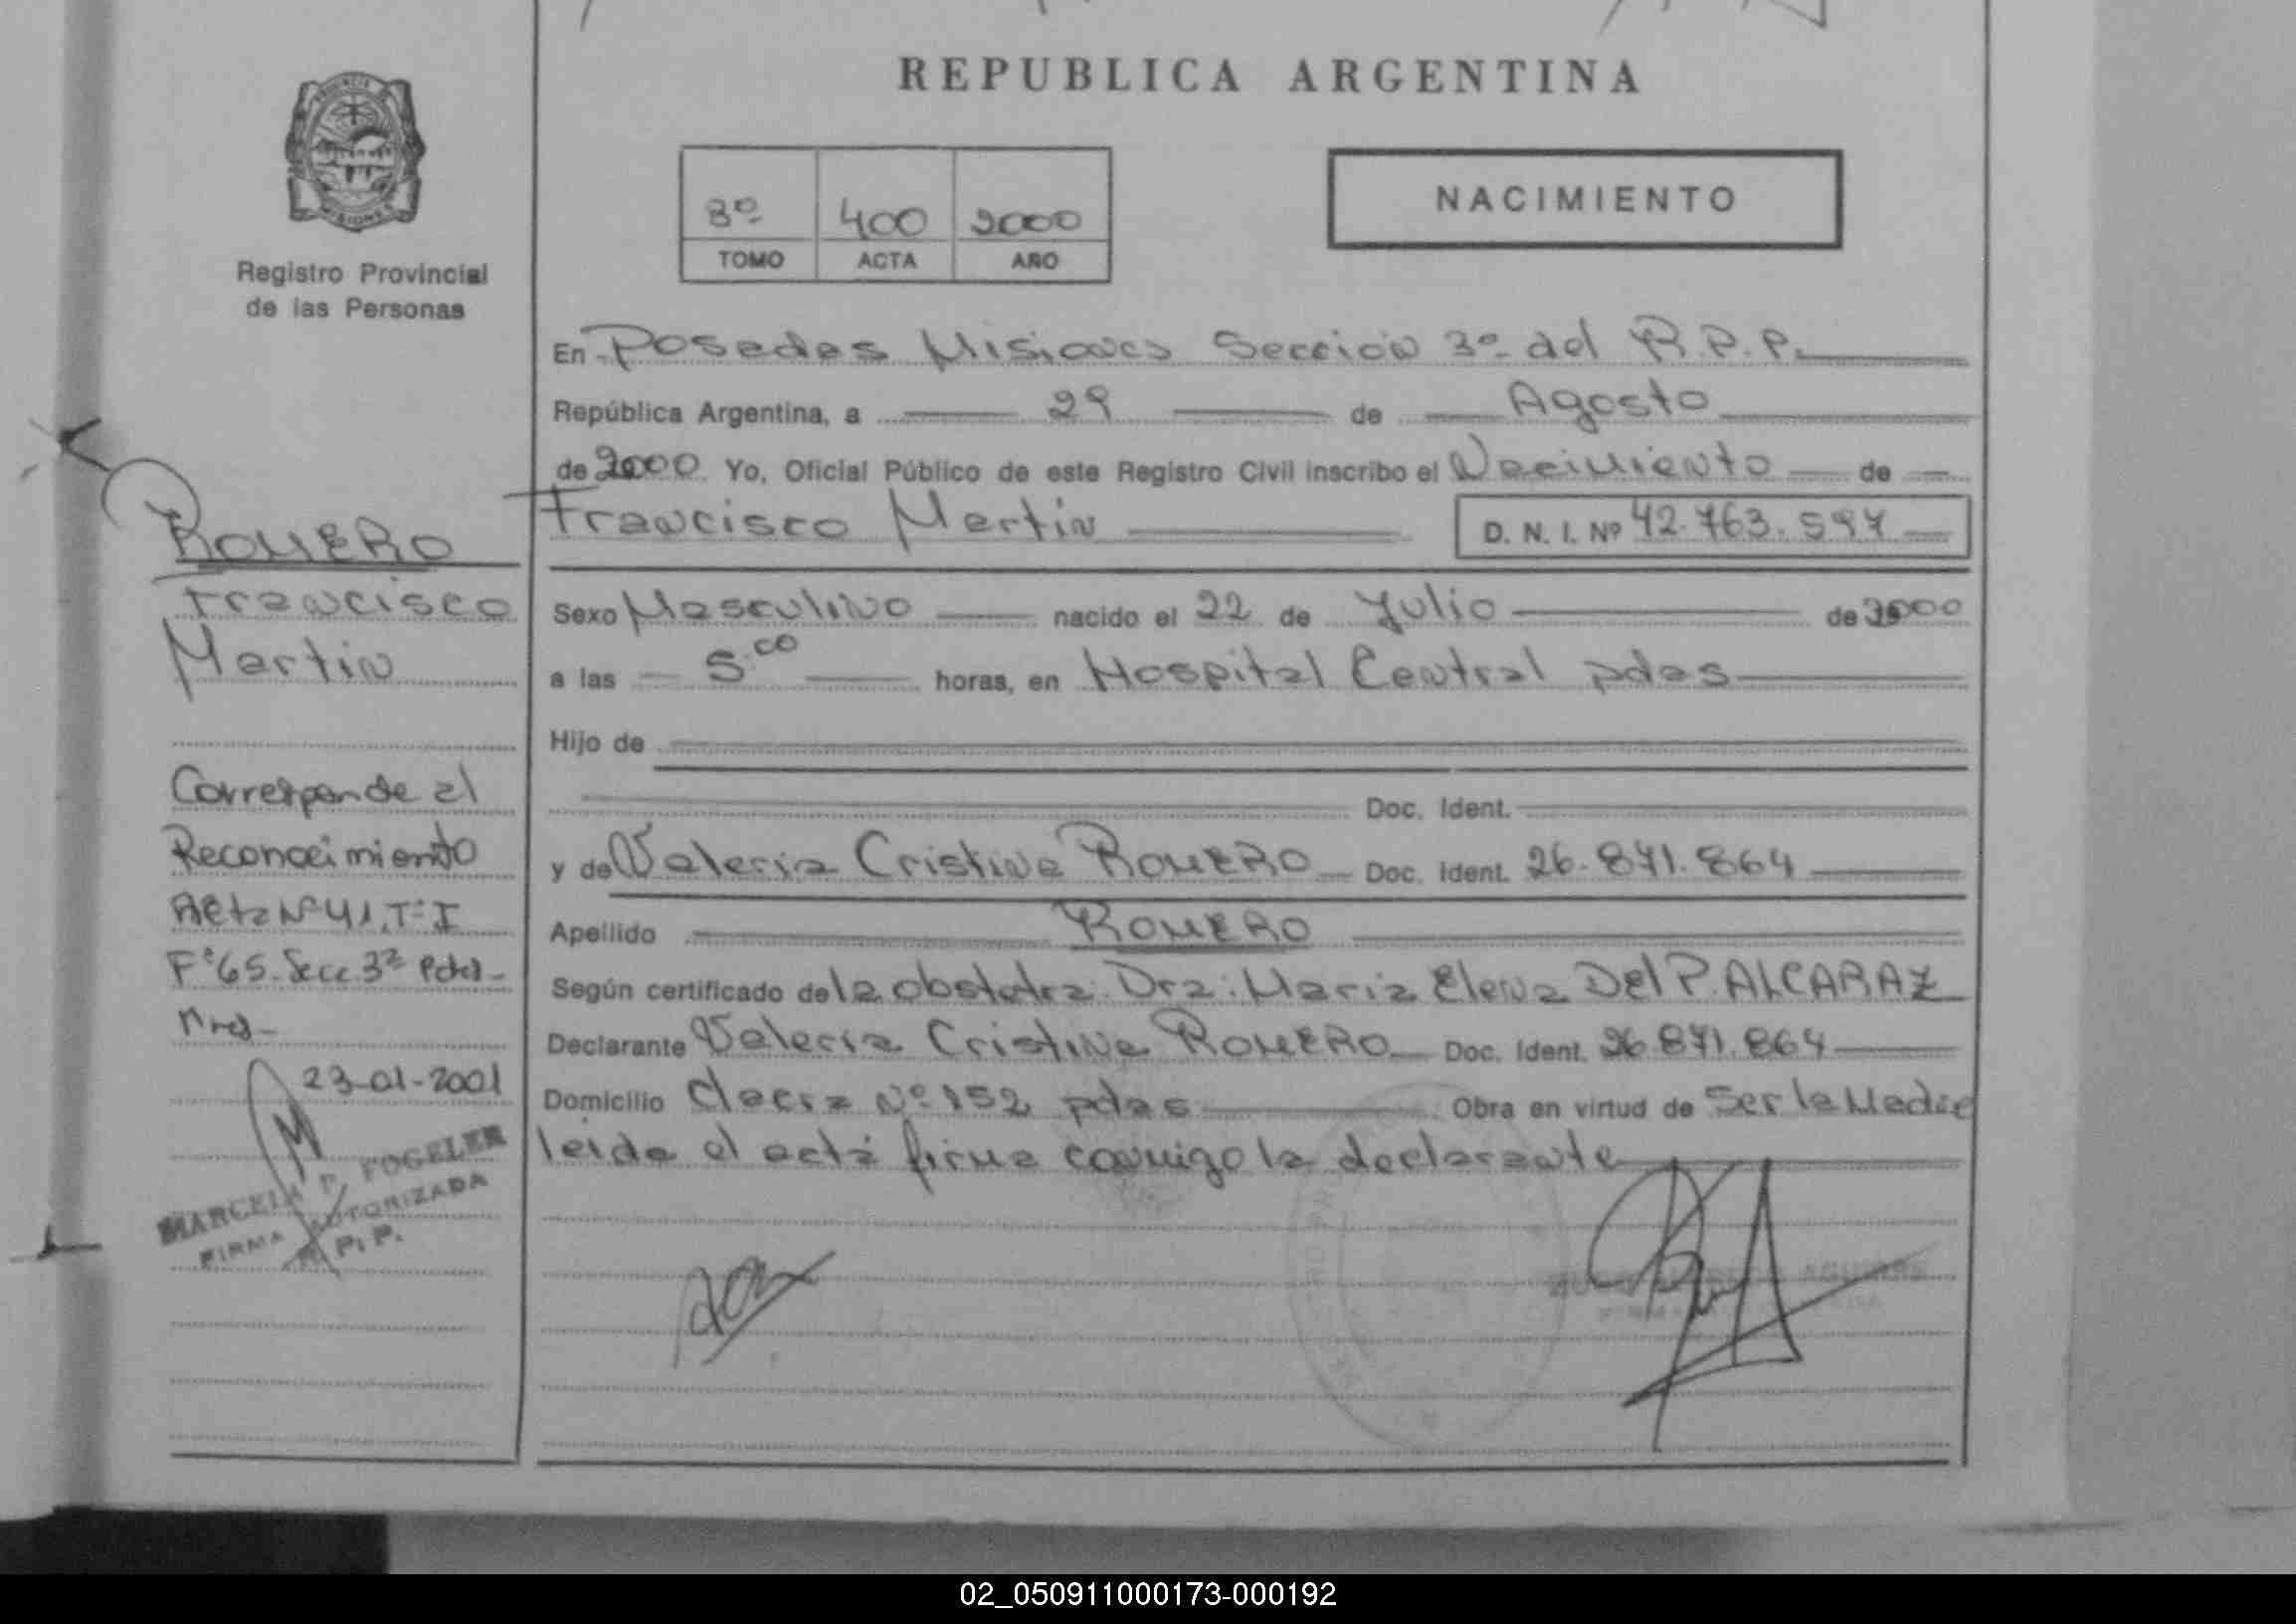 REPUBLICA ARGENTINA
NACIMIENTO
3º 400 2000
TOMO ACTA AÑO
Registro Provincial
de las Personas
En Posadas Misiones Sección 3º del R.P.P.
República Argentina, a 29 de Agosto
de 2000 Yo, Oficial Público de este Registro Civil inscribo el Nacimiento de
Francisco Martin D. N. I. Nº 42.763.597
Sexo Masculino nacido el 22 de Julio de 2000
a las 5.00 horas, en Hospital Central pdas
Hijo de
Doc. Ident.
y de Valeria Cristina ROMERO Doc. Ident. 26.871.864
Apellido ROMERO
Según certificado de la obstetra Dra: Maria Elena Del P. ALCARAZ
Declarante Valeria Cristina ROMERO Doc. Ident. 26.871.864
Domicilio Chacra Nº 152 pdas Obra en virtud de Ser la Madre
leida el acta firma conmigo la declarante
ROMERO
Francisco
Martin
Corresponde al
Reconocimiento
Acta Nº 41, Tº I
Fº 65. Secc. 3ª Pdas-
Mnes-
23-01-2001
MARCELA P. FOGELER
FIRMA AUTORIZADA
R. P. P.
AGUIRRE
FIRMA
02_050911000173-000192